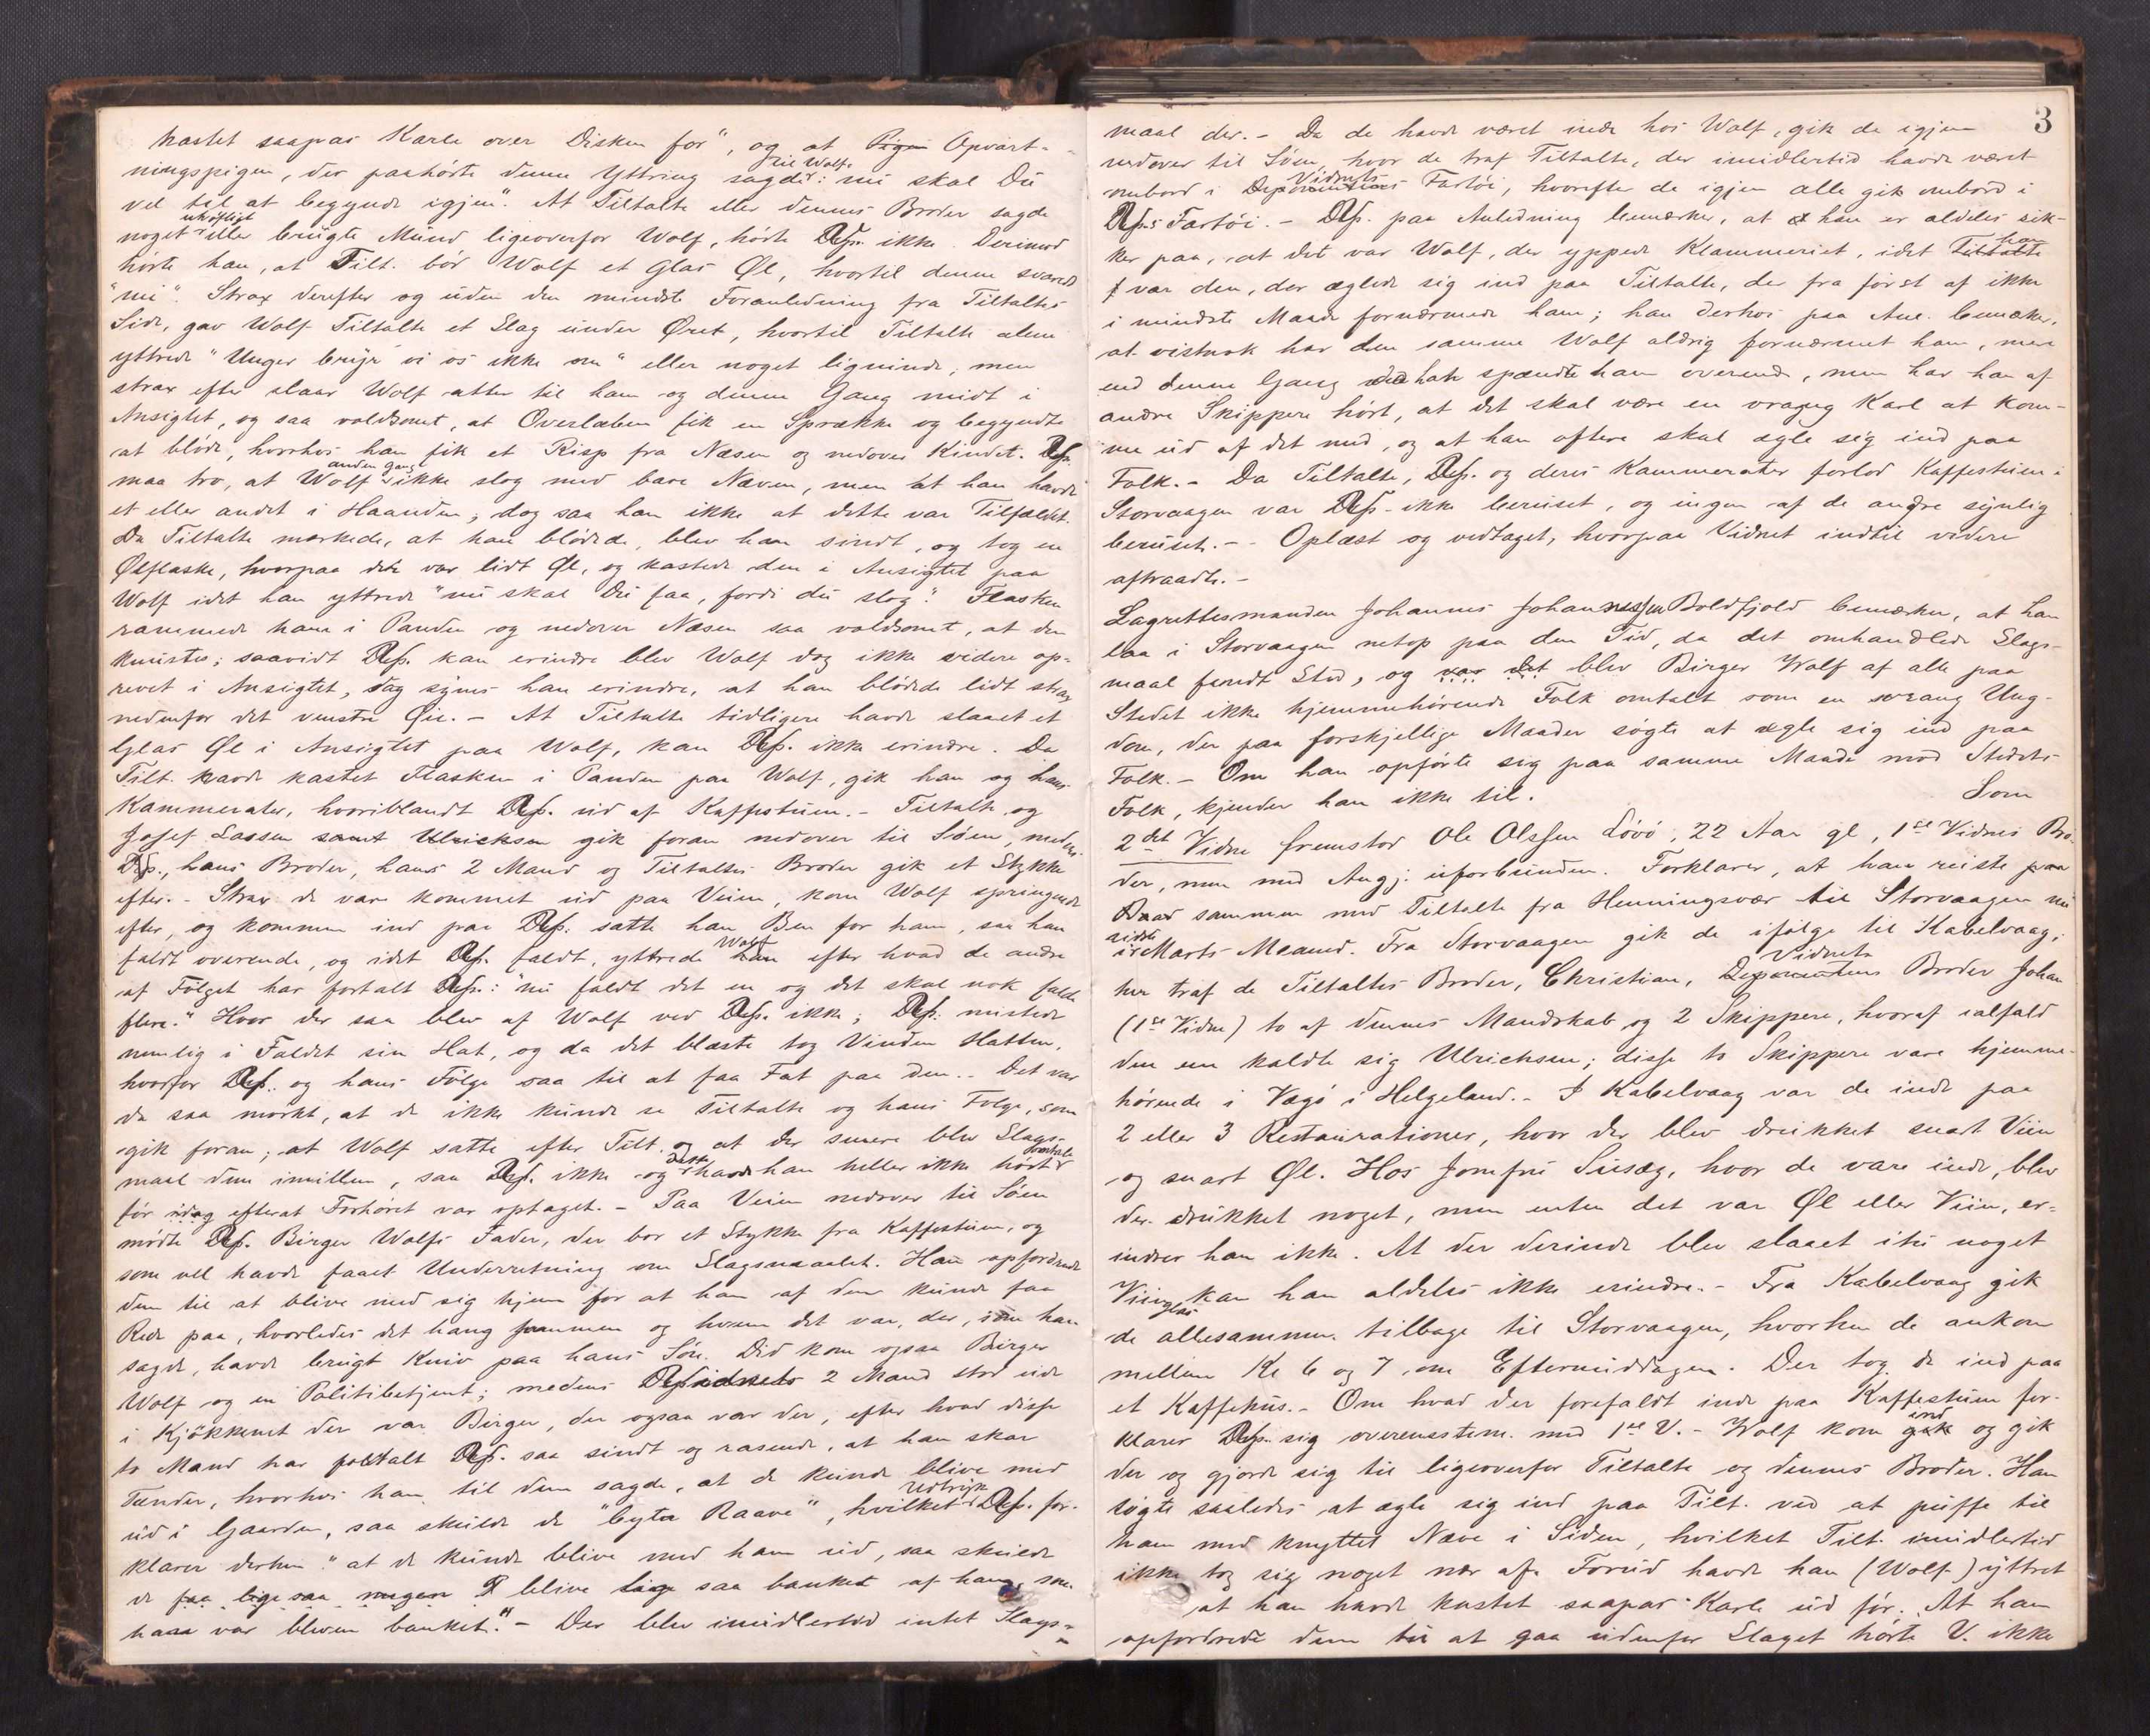 kastet saapas Karle over Disken før", og at Pigen Opvart-
ningspigen, der paahørte denne Yttring sagde til Wolf: "nu skal Du
vel til at begynde igjen". At Tiltalte eller dennes Broder sagde
noget uhøfligt eller brugte Mund ligeoverfor Wolf, hørte Dep. ikke. Derimod
hørte han, at Tilt. bød Wolf et Glas Øl, hvortil denne svarede
"nei". Strax derefter og uden den mindste Foranledning fra Tiltaltes
Side, gav Wolf Tiltalte et Slag under Øret, hvortil Tiltalte alene
yttrede "Unger bryr vi os ikke om" eller noget lignende; men
strax efter slaar Wolf atter til ham og denne Gang midt i
Ansigtet, og saa voldsomt, at Overlæben fik en Sprække og begyndte
at bløde, hvorhos han fik et Risp fra Næsen og nedover Kindet. Dep.
maa tro, at Wolf anden gang ikke slog med bare Næven, men at han havde
et eller andet i Haanden, dog saa han ikke at dette var Tilfældet.
Da Tiltalte mærkede, at han blødede, blev han sindt, og tog en
Ølflaske, hvorpaa der var lidt Øl, og kastede den i Ansigtet paa
Wolf idet han yttrede "nu skal Du faa, fordi du slog". Flasken
rammede ham i Panden og nedover Næsen saa voldsomt, at den
knustes; saavidt Dep. kan erindre blev Wolf dog ikke videre op-
revet i Ansigtet, dog synes han erindre, at han blødede lidt strax
nedenfor det venstre Øie. - At Tiltalte tidligere havde slaaet et
Glas Øl i Ansigtet paa Wolf, kan Dep. ikke erindre. Da
Tilt. havde kastet Flasken i Panden paa Wolf, gik han og hans
Kammerater, hvoriblandt Dep. ud af Kaffestuen. - Tiltalte og
Josef Lassen samt Ulricksen gik foran nedover til Søen, medens
Dep., hans Broder, hans 2 Mand og Tiltaltes Broder gik et Stykke
efter. - Strax de vare kommet ud paa Veien, kom Wolf springende
efter, og kommen ind paa Dep. satte han Ben for ham, saa han
faldt overende, og idet Dep. faldt, yttrede han Wolf efter hvad de andre
af Følget har fortalt Dep.: "nu faldt det en og det skal nok falde
flere." Hvor der saa blev af Wolf ved Dep. ikke; Dep. mistede
nemlig i Faldet sin Hat, og da det blæste tog Vinden Hatten,
hvorfor Dep. og hans Følge saa til at faa Fat paa den. - Det var
da saa mørkt, at de ikke kunde se Tiltalte og hans Følge, som
gik foran; at Wolf satte efter Tilt. og at der senere blev Slags-
maal dem imillem, saa Dep. ikke og dette havde han heller ikke hørt fortale
før idag efterat Forhøret var optaget. - Paa Veien nedover til Søen
mødte Dep. Birger Wolfs Fader, der bor et Stykke fra Kaffestuen, og
som vel havde faaet Underretning om Slagsmaalet. Han opfordrede
dem til at blive med sig hjem for at han af dem kunde faa
Rede paa, hvorledes det hang sammen og hvem det var, der, som han
sagde, havde brugt Kniv paa hans Søn. Did kom ogsaa Birger
Wolf og en Politibetjent; medens Dep. Vidnets 2 Mand stod ude
i Kjøkkenet der var Birger, der ogsaa var der, efter hvad disse
to Mand har fortalt Dep. saa sindt og rasende, at han skar
Tænder, hvorhos han til dem sagde, at de kunde blive med
ud i Gaarden, saa skulde de "byta Raave", hvilket Udtryk Dep. for-
klarer derhen "at de kunde blive med ham ud, saa skulde
de faa ligesaa megen P blive lige saa banket af ham, som
han var bleven banket." - Der blev imidlertid intet Slags-
3
maal der. - Da de havde været inde hos Wolf, gik de igjen
nedover til Søen, hvor de traf Tiltalte, der imidlertid havde været
ombord i Deponentens Vidnets Fartøi, hvorefter de igjen alle gik ombord i
Dep.s Fartøi. - Dep. paa Anledning bemærker, at han er aldeles sik-
ker paa, at det var Wolf, der yppede Klammeriet, idet Tiltalte han
var den, der æglede sig ind paa Tiltalte, der fra først af ikke
i mindste Maade fornærmede ham; han derhos paa Anl. bemærker,
at vistnok har den samme Wolf aldrig fornærmet ham, mere
end denne Gang da han spændte ham overende, men har han af
andre Skippere hørt, at det skal være en vrang Karl at kom-
me ud af det med, og at han oftere skal ægle sig ind paa
Folk. - Da Tiltalte, Dep. og deres Kammerater forlod Kaffestuen i
Storvaagen var Dep. ikke beruset, og ingen af de andre synlig
beruset. - Oplæst og vedtaget, hvorpaa Vidnet indtil videre
aftraadte. -
Lagrettesmanden Johannes Johannessen Boldfjold bemærker, at han
laa i Storvaagen netop paa den Tid, da det omhandlede Slags-
maal fandt Sted, og var det blev Birger Wolf af alle paa
Stedet ikke hjemmehørende Folk omtalt som en vrang Ung-
dom, der paa forskjellige Maader søgte at ægle sig ind paa
Folk. - Om han opførte sig paa samme Maade mod Stedets
Folk, kjender han ikke til. Som
2det Vidne fremstod Ole Olsen Løvø, 22 Aar gl, 1ste Vidnes Bro-
der, men med Angj. uforbunden. Forklarer, at han reiste paa
Baad sammen med Tiltalte fra Henningsvær til Storvaagen nu
sidste i Marts Maaned. Fra Storvaagen gik de ifølge til Kabelvaag;
her traf de Tiltaltes Broder, Christian, Deponentens Vidnets Broder Johan
(1ste Vidne) to af dennes Mandskab og 2 Skippere, hvoraf ialfald
den ene kaldte sig Ulrichsen; disse to Skippere vare hjemme-
hørende i Vegø i Helgeland. - I Kabelvaag var de inde paa
2 eller 3 Restaurationer, hvor der blev drukket snart Viin
og snart Øl. Hos Jomfru Susæg, hvor de vare inde, blev
der drukket noget, men enten det var Øl eller Viin, er-
indrer han ikke. At der derinde blev slaaet itu noget
Viinglas kan han aldeles ikke erindre. - Fra Kabelvaag gik
de allesammen tilbage til Storvaagen, hvorhen de ankom
mellem Kl 6 og 7 om Eftermiddagen. Der tog de ind paa
et Kaffehus. - Om hvad der forefaldt inde paa Kaffestuen for-
klarer Dep. sig overensstem. med 1ste V. - Wolf kom gik ind og gik
der og gjorde sig til ligeoverfor Tiltalte og dennes Broder. Han
søgte saaledes at ægle sig ind paa Tilt. ved at puffe til
ham med knyttet Næve i Siden, hvilket Tilt. imidlertid
ikke tog sig noget nær af. Forud havde han (Wolf) yttret
at han havde kastet saapas Karle ud før. At han
opfordrede dem til at gaa udenfor Slaget hørte V. ikke